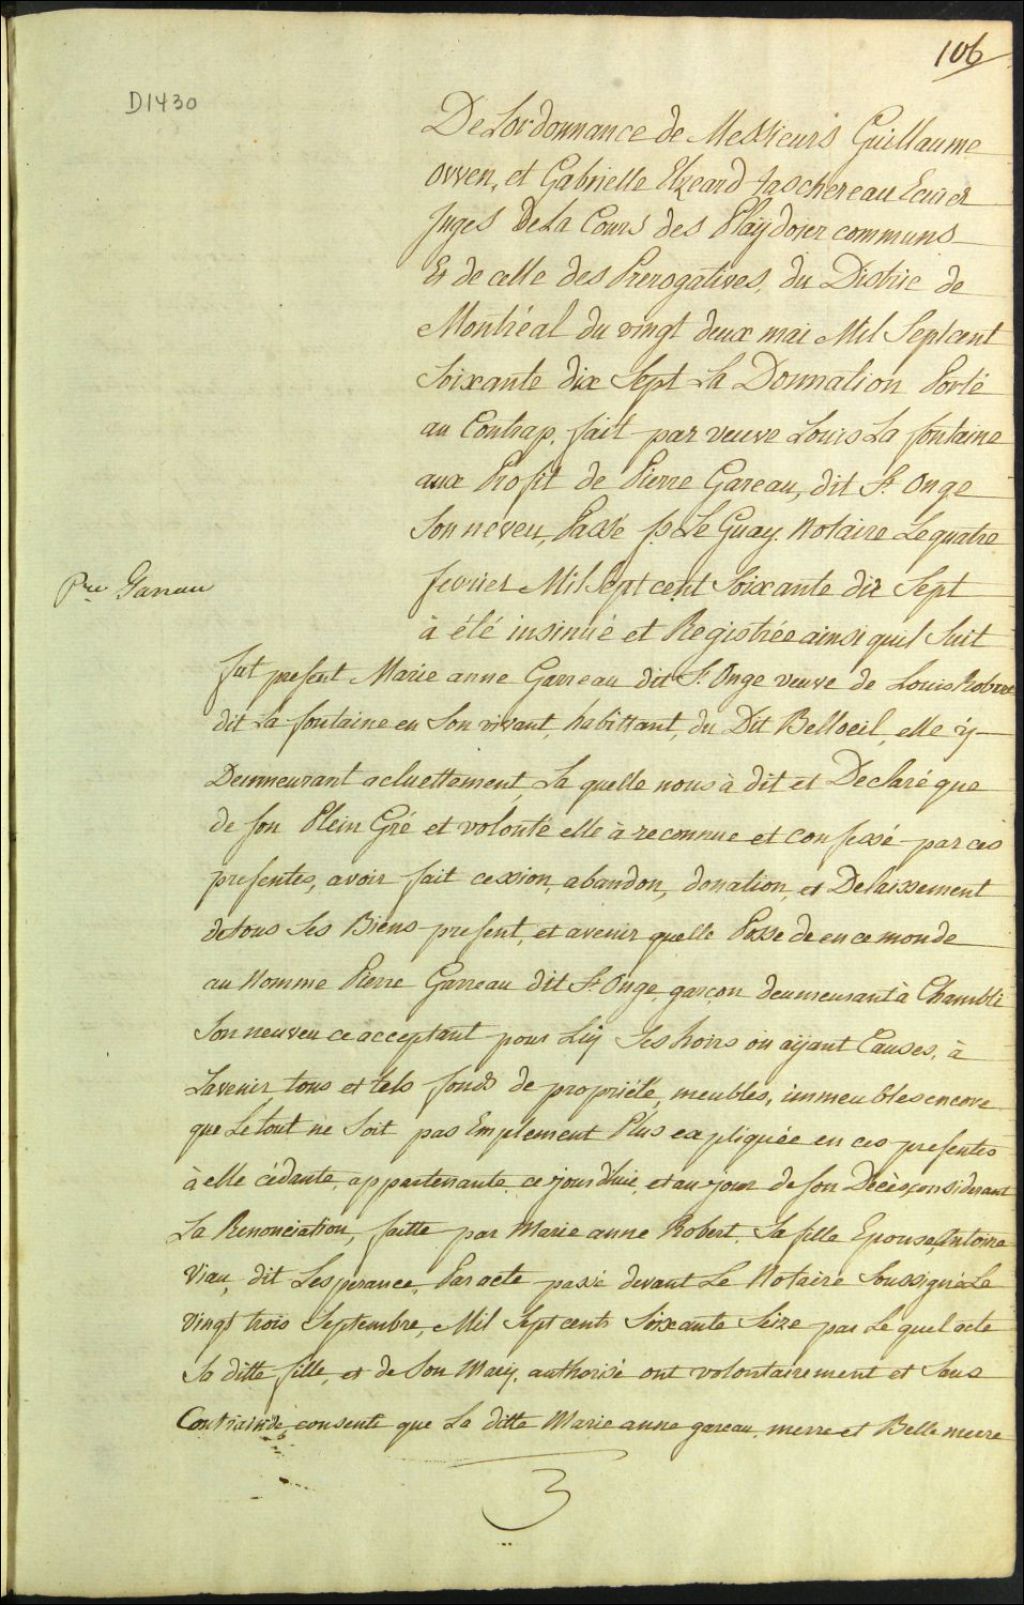 106
D1430
De Lordonnance de Messieurs Guillaume
Owen, et Gabrielle Elzeard taschereau Ecuier
Juges De La Cours des Playdoier communs
Et de celle des Prerogatives, du Distric de
Montréal du vingt deux mai Mil Septcent
Soixante dix Sept La Donnation Porté
au Contrap. fait par veuve Louis La fontaine
aux Profit de Pierre Gareau, dit St. Onge
Son neveu, Passé p. Le Guay. Notaire Le quatre
Pre Garrau
fevrier Mil Sept cent Soixante dix Sept
à été insinué et Registrée ainsi quil Suit
fut present Marie anne Garreau dit St. Onge veuve de Louis Robert
dit La fontaine en Son vivant, habittant, du Dit Belloeil, elle ÿ
Deumeurant actuettement, La quelle nous à dit et Declaré que
de son Plein Gré et volonté elle à reconnue et confessé par ces
presentes, avoir fait cession, abandon, donation, et Delaissement
de tous Ses Biens present, et avenir quelle Posse de en ce monde
au Nomme Pierre Garreau dit St. Onge, garçon deumeurant à Chambli
Son neuveu ce acceptant pour Luy Ses hoirs ou aÿant Causes, à
Lavenir tous et tels fonds de propriété, meubles, immeubles encore
que Le tout ne Soit pas Emplement Plus expliquée en ces presentes
à elle cédante, appartenante, ce jour dhuie, et au jour de son Décès, considerant
La Renonciation, faitte par Marie anne Robert, Sa fille Epouse, Antoine
Viau, dit Lesperance, Par acte passé devant Le Notaire Soussigné Le
Vingt trois Septembre, Mil Sept cents Soixante Seize par Le quel acte
Sa ditte fille, et de Son Mary, authorisé ont volontairement et Sans
Contrainde, consente que La ditte Marie anne gareau, merre et Belle meere
3